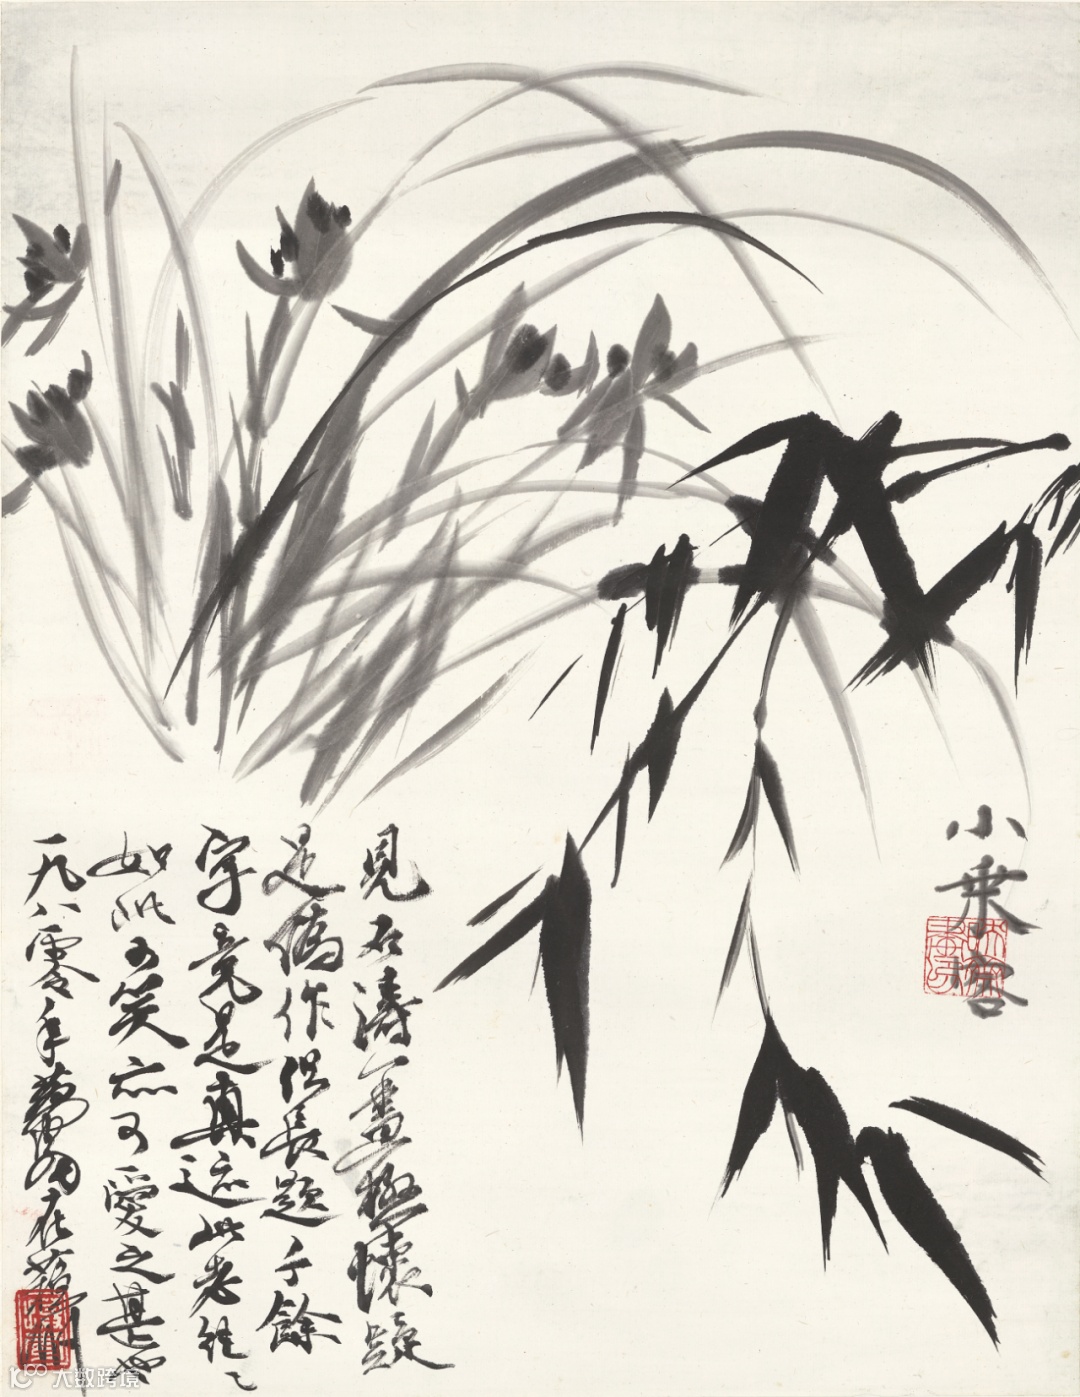 小乘客
見石濤畫極懷疑
是偽作但長題千餘
字竟是真迹此老往〻
如此可笑亦可愛之甚也
一九八零年在蘇州
大数跨境